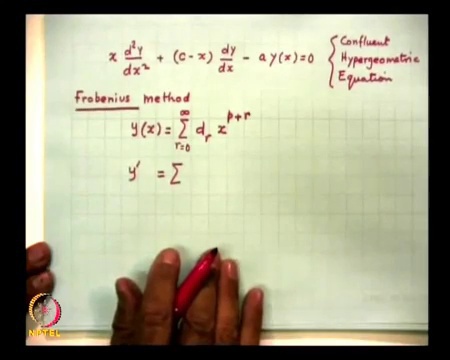 x d²y/dx² + (c-x) dy/dx - a y(x) = 0 { Confluent
Hypergeometric
Equation
Frobenius method
y(x) = ∑_{r=0}^{∞} d_r x^{p+r}
y' = ∑
NPTEL